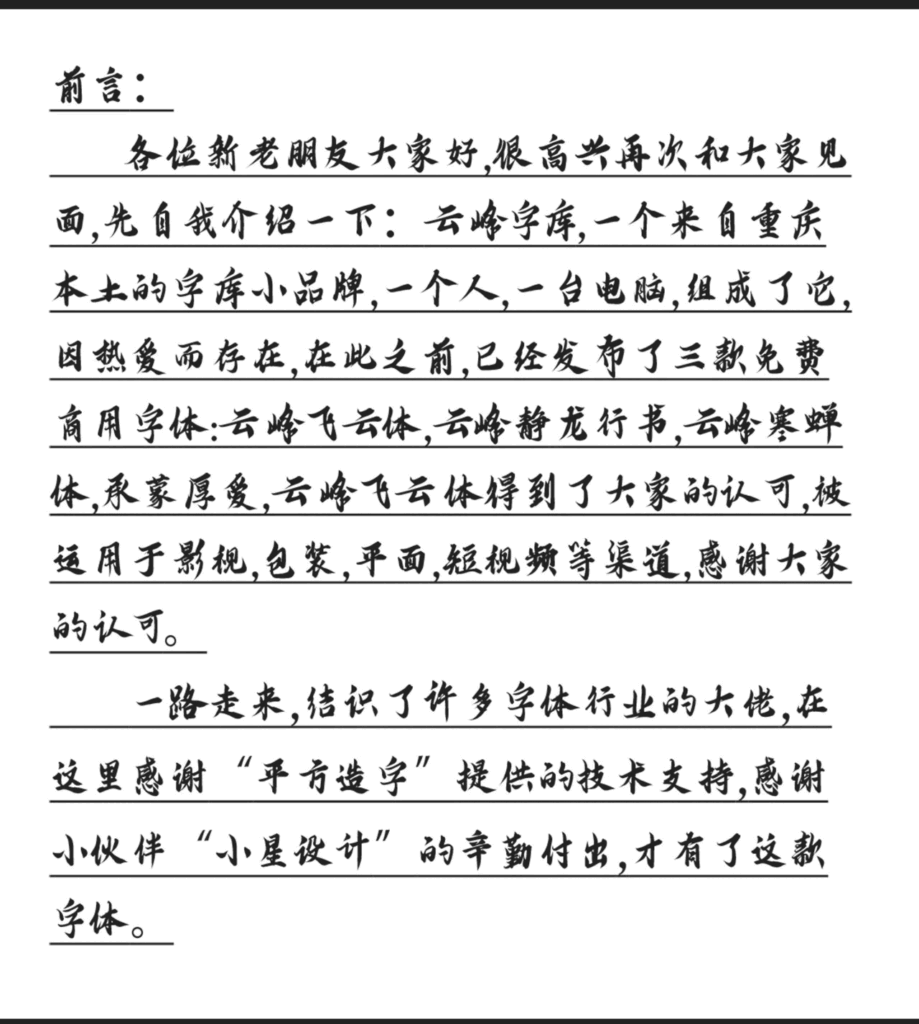 前言：
各位新老朋友大家好,很高兴再次和大家见
面,先自我介绍一下：云峰字库,一个来自重庆
本土的字库小品牌,一个人,一台电脑,组成了它,
因热爱而存在,在此之前,已经发布了三款免费
商用字体:云峰飞云体,云峰静龙行书,云峰寒蝉
体,承蒙厚爱,云峰飞云体得到了大家的认可,被
运用于影视,包装,平面,短视频等渠道,感谢大家
的认可。
一路走来,结识了许多字体行业的大佬,在
这里感谢“平方造字”提供的技术支持,感谢
小伙伴“小星设计”的辛勤付出,才有了这款
字体。